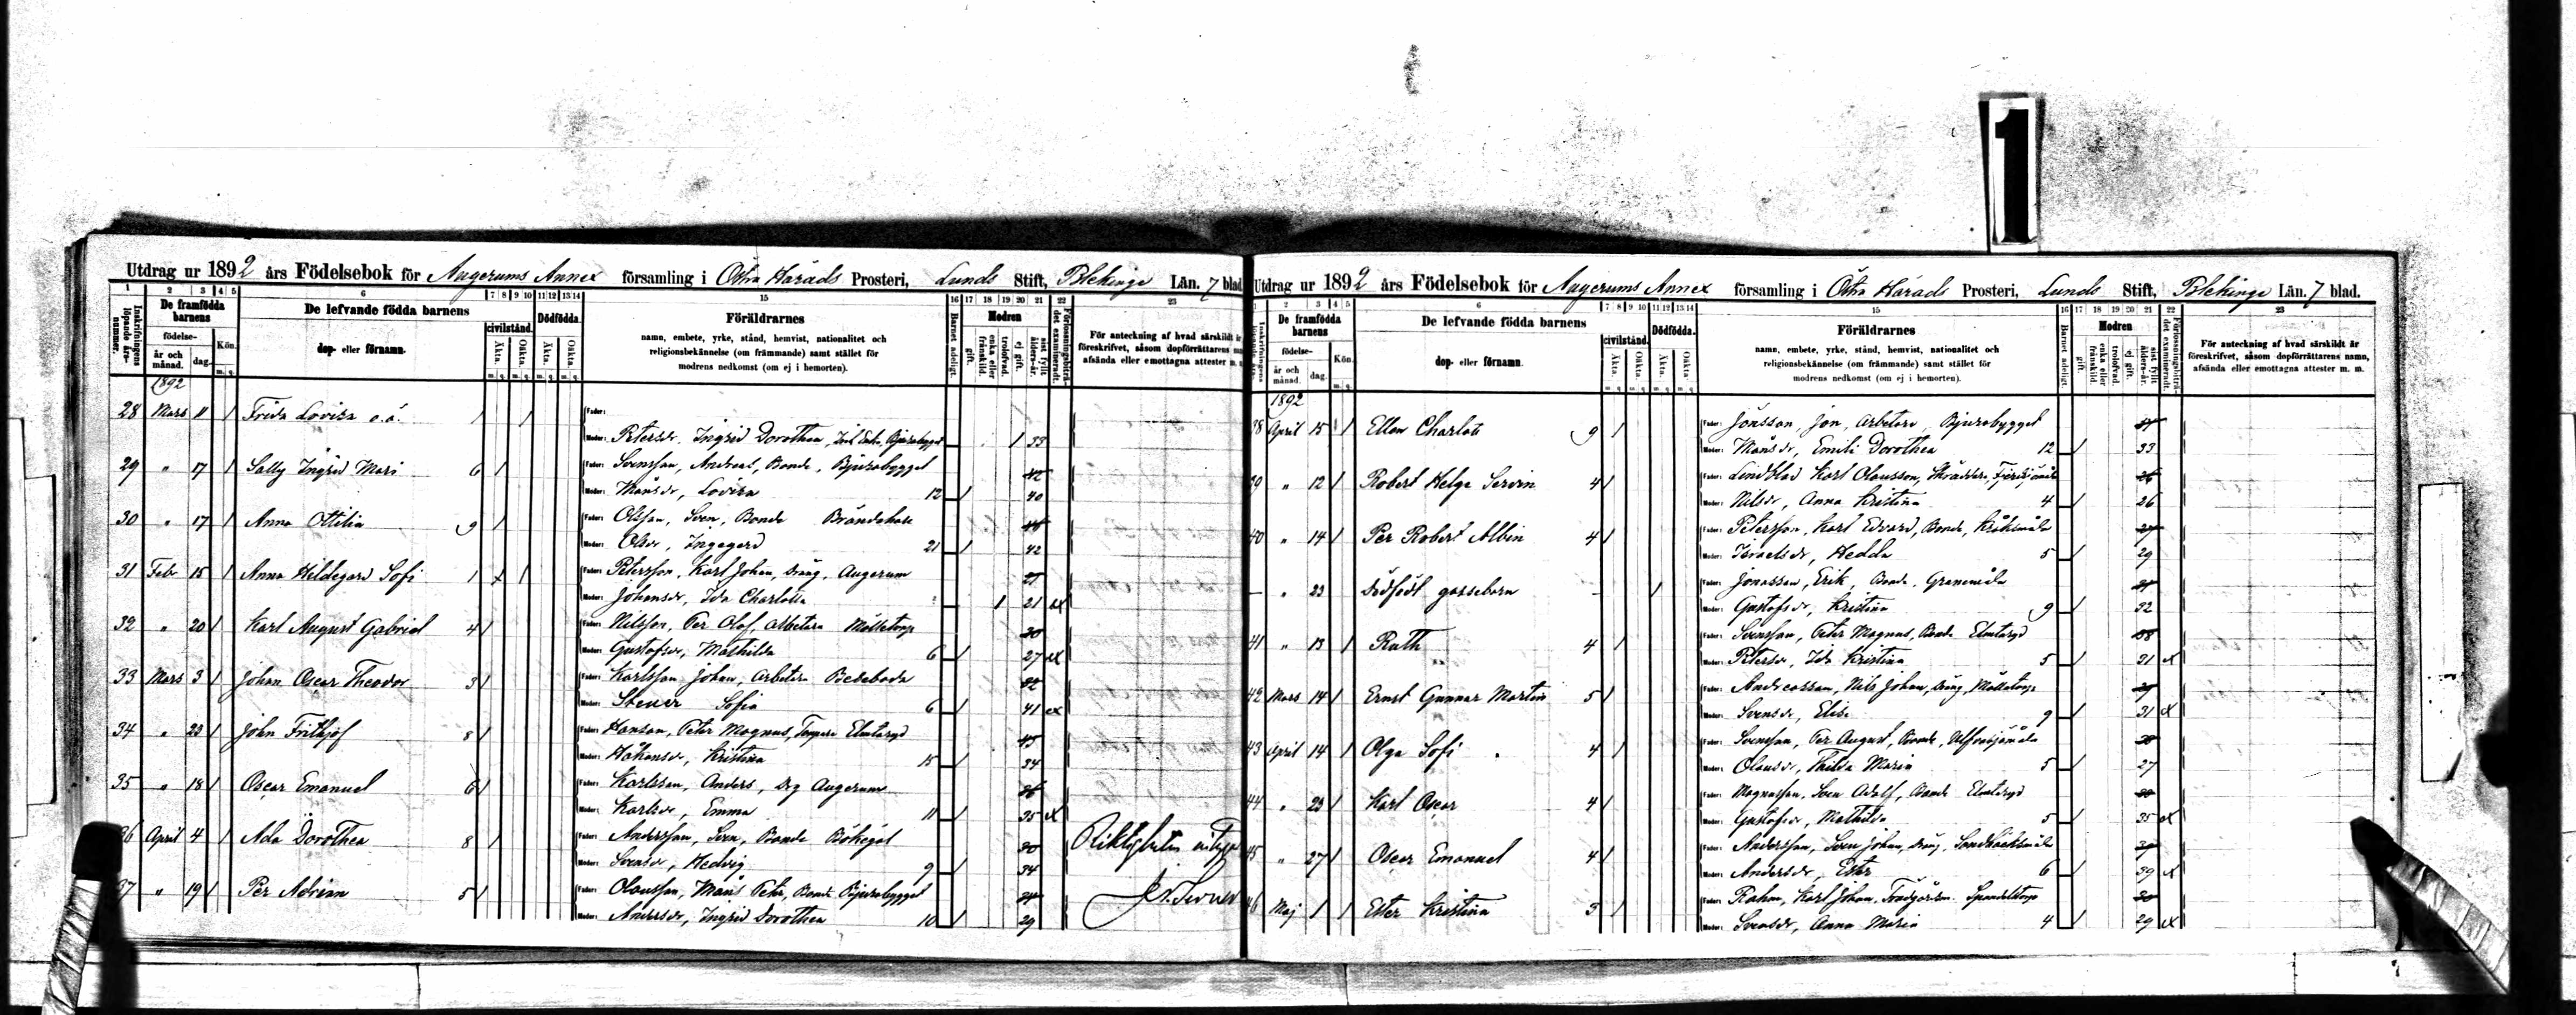 1
Utdrag ur 1892 års Födelsebok för Augerums Annex församling i Östra Härads Prosteri, Lunds Stift, Blekinge Län. 7 blad
1 2 3 4 5 6 7 8 9 10 11 12 13 14 15 16 17 18 19 20 21 22 23
Inskrifningens löpande års-nummer.
De framfödda barnens
födelse-
år och månad. dag.
Kön.
m. q.
De lefvande födda barnens
dop- eller förnamn.
civilstånd.
Äkta. Oäkta.
Dödfödda.
Äkta. Oäkta.
Föräldrarnes
namn, embete, yrke, stånd, hemvist, nationalitet och
religionsbekännelse (om främmande) samt stället för
modrens nedkomst (om ej i hemorten).
Barnet adeligt.
Modren
gift.
enka eller frånskild.
trolofvad.
ej gift.
sist fyllt ålders-år.
Förlossningsbiträdet examineradt.
För anteckning af hvad särskildt är
föreskrifvet, såsom dopförrättarens
afsända eller emottagna attester m. m.
1892
28 Mars 11 / Frida Lovisa o.ä. 1 / Fader:
Moder: Petersdr. Ingrid Dorothea, Bjurabygget / 33
29 " 17 / Sally Ingrid Mari 6 / Fader: Svensson, Andreas, Bonde, Bjurabygget 42
Moder: Månsdr, Lovisa 12 / 40
30 " 17 / Anna Ottilia 9 / Fader: Olsson, Sven, Bonde Brändahale
Moder: Olsdr, Ingegerd 21 / 42
31 Febr 15 / Anna Hildegard Sofi 1 / Fader: Petersson, Karl Johan, Dräng, Augerum
Moder: Johansdr, Ida Charlotta / 21 ex
32 " 20 / Karl August Gabriel 4 / Fader: Nilsson, Per Olof, Arbetare Mölletorp 30
Moder: Gustafsdr, Mathilda 6 / 27 ex
33 Mars 3 / Johan Oscar Theodor 3 / Fader: Karlsson Johan, Arbetare Bedaboda 42
Moder: Stener Sofia 6 / 41 ex
34 " 23 / John Frithjof 8 / Fader: Hanson, Peter Magnus, Torpare Elmtaryd 45
Moder: Håkansdr, Kristina 15 / 34
35 " 18 / Oscar Emanuel 6 / Fader: Karlsson, Anders, Drg Augerum 36
Moder: Karlsdr, Emma 11 / 35 ex
36 April 4 / Ada Dorothea 8 / Fader: Andersson, Sven, Bonde Bökegöl
Moder: Svensdr, Hedvig 9 / 34
37 " 19 / Per Adrian 5 / Fader: Olausson, Måns Peter, Bonde Bjurabygget
Moder: Andersdr, Ingrid Dorothea 10 / 29
Riktigheten intygar
Utdrag ur 1892 års Födelsebok för Augerums Annex församling i Östra Härads Prosteri, Lunds Stift, Blekinge Län. 7 blad.
1 2 3 4 5 6 7 8 9 10 11 12 13 14 15 16 17 18 19 20 21 22 23
De framfödda barnens
födelse-
år och månad. dag.
Kön.
m. q.
De lefvande födda barnens
dop- eller förnamn.
civilstånd.
Äkta. Oäkta.
Dödfödda.
Äkta. Oäkta.
Föräldrarnes
namn, embete, yrke, stånd, hemvist, nationalitet och
religionsbekännelse (om främmande) samt stället för
modrens nedkomst (om ej i hemorten).
Barnet adeligt.
Modren
gift.
enka eller frånskild.
trolofvad.
ej gift.
sist fyllt ålders-år.
Förlossningsbiträdet examineradt.
För anteckning af hvad särskildt är
föreskrifvet, såsom dopförrättarens namn,
afsända eller emottagna attester m. m.
1892
38 April 15 / Ellen Charlott 9 / Fader: Jönsson, Jon, Arbetare, Bjurabygget
Moder: Månsdr, Emili Dorothea 12 / 33
39 " 12 / Robert Helge Servin 4 / Fader: Lindblad Karl Olausson, Skräddare 26
Moder: Nilsdr, Anna Kristina 4 / 26
40 " 14 / Per Robert Albin 4 / Fader: Petersson, Karl Edvard, Bonde, Kråksmåla 27
Moder: Israelsdr, Hedda 5 / 29
— " 23 Dödfödt gossebarn - / Fader: Jonasson, Erik, Bonde, Granemåla
Moder: Gustafsdr, Kristina 9 / 32
41 " 13 / Ruth 4 / Fader: Svensson, Peter Magnus, Bonde Elmtaryd 38
Moder: Petersdr, Ida Kristina 5 / 31 ex
42 Mars 14 / Ernst Gunnar Martin 5 / Fader: Andreasson, Nils Johan, Dräng, Mölletorp
Moder: Svensdr, Elise 9 / 31 ex
43 April 14 / Olga Sofi 4 / Fader: Svensson, Per August, Bonde,
Moder: Olausdr, Thilda Maria 5 / 27
44 " 23 / Karl Oscar 4 / Fader: Magnusson, Sven Adolf, Bonde Elmtaryd
Moder: Gustafsdr, Mathilda 5 / 35 ex
45 " 27 / Oscar Emanuel 4 / Fader: Andersson, Sven Johan, Dräng,
Moder: Andersdr, Ester 6 / 39 ex
46 Maj 1 / Ester Kristina 3 / Fader: Rahm, Karl Johan, Spandelstorp 30
Moder: Svensdr, Anna Maria 4 / 29 ex